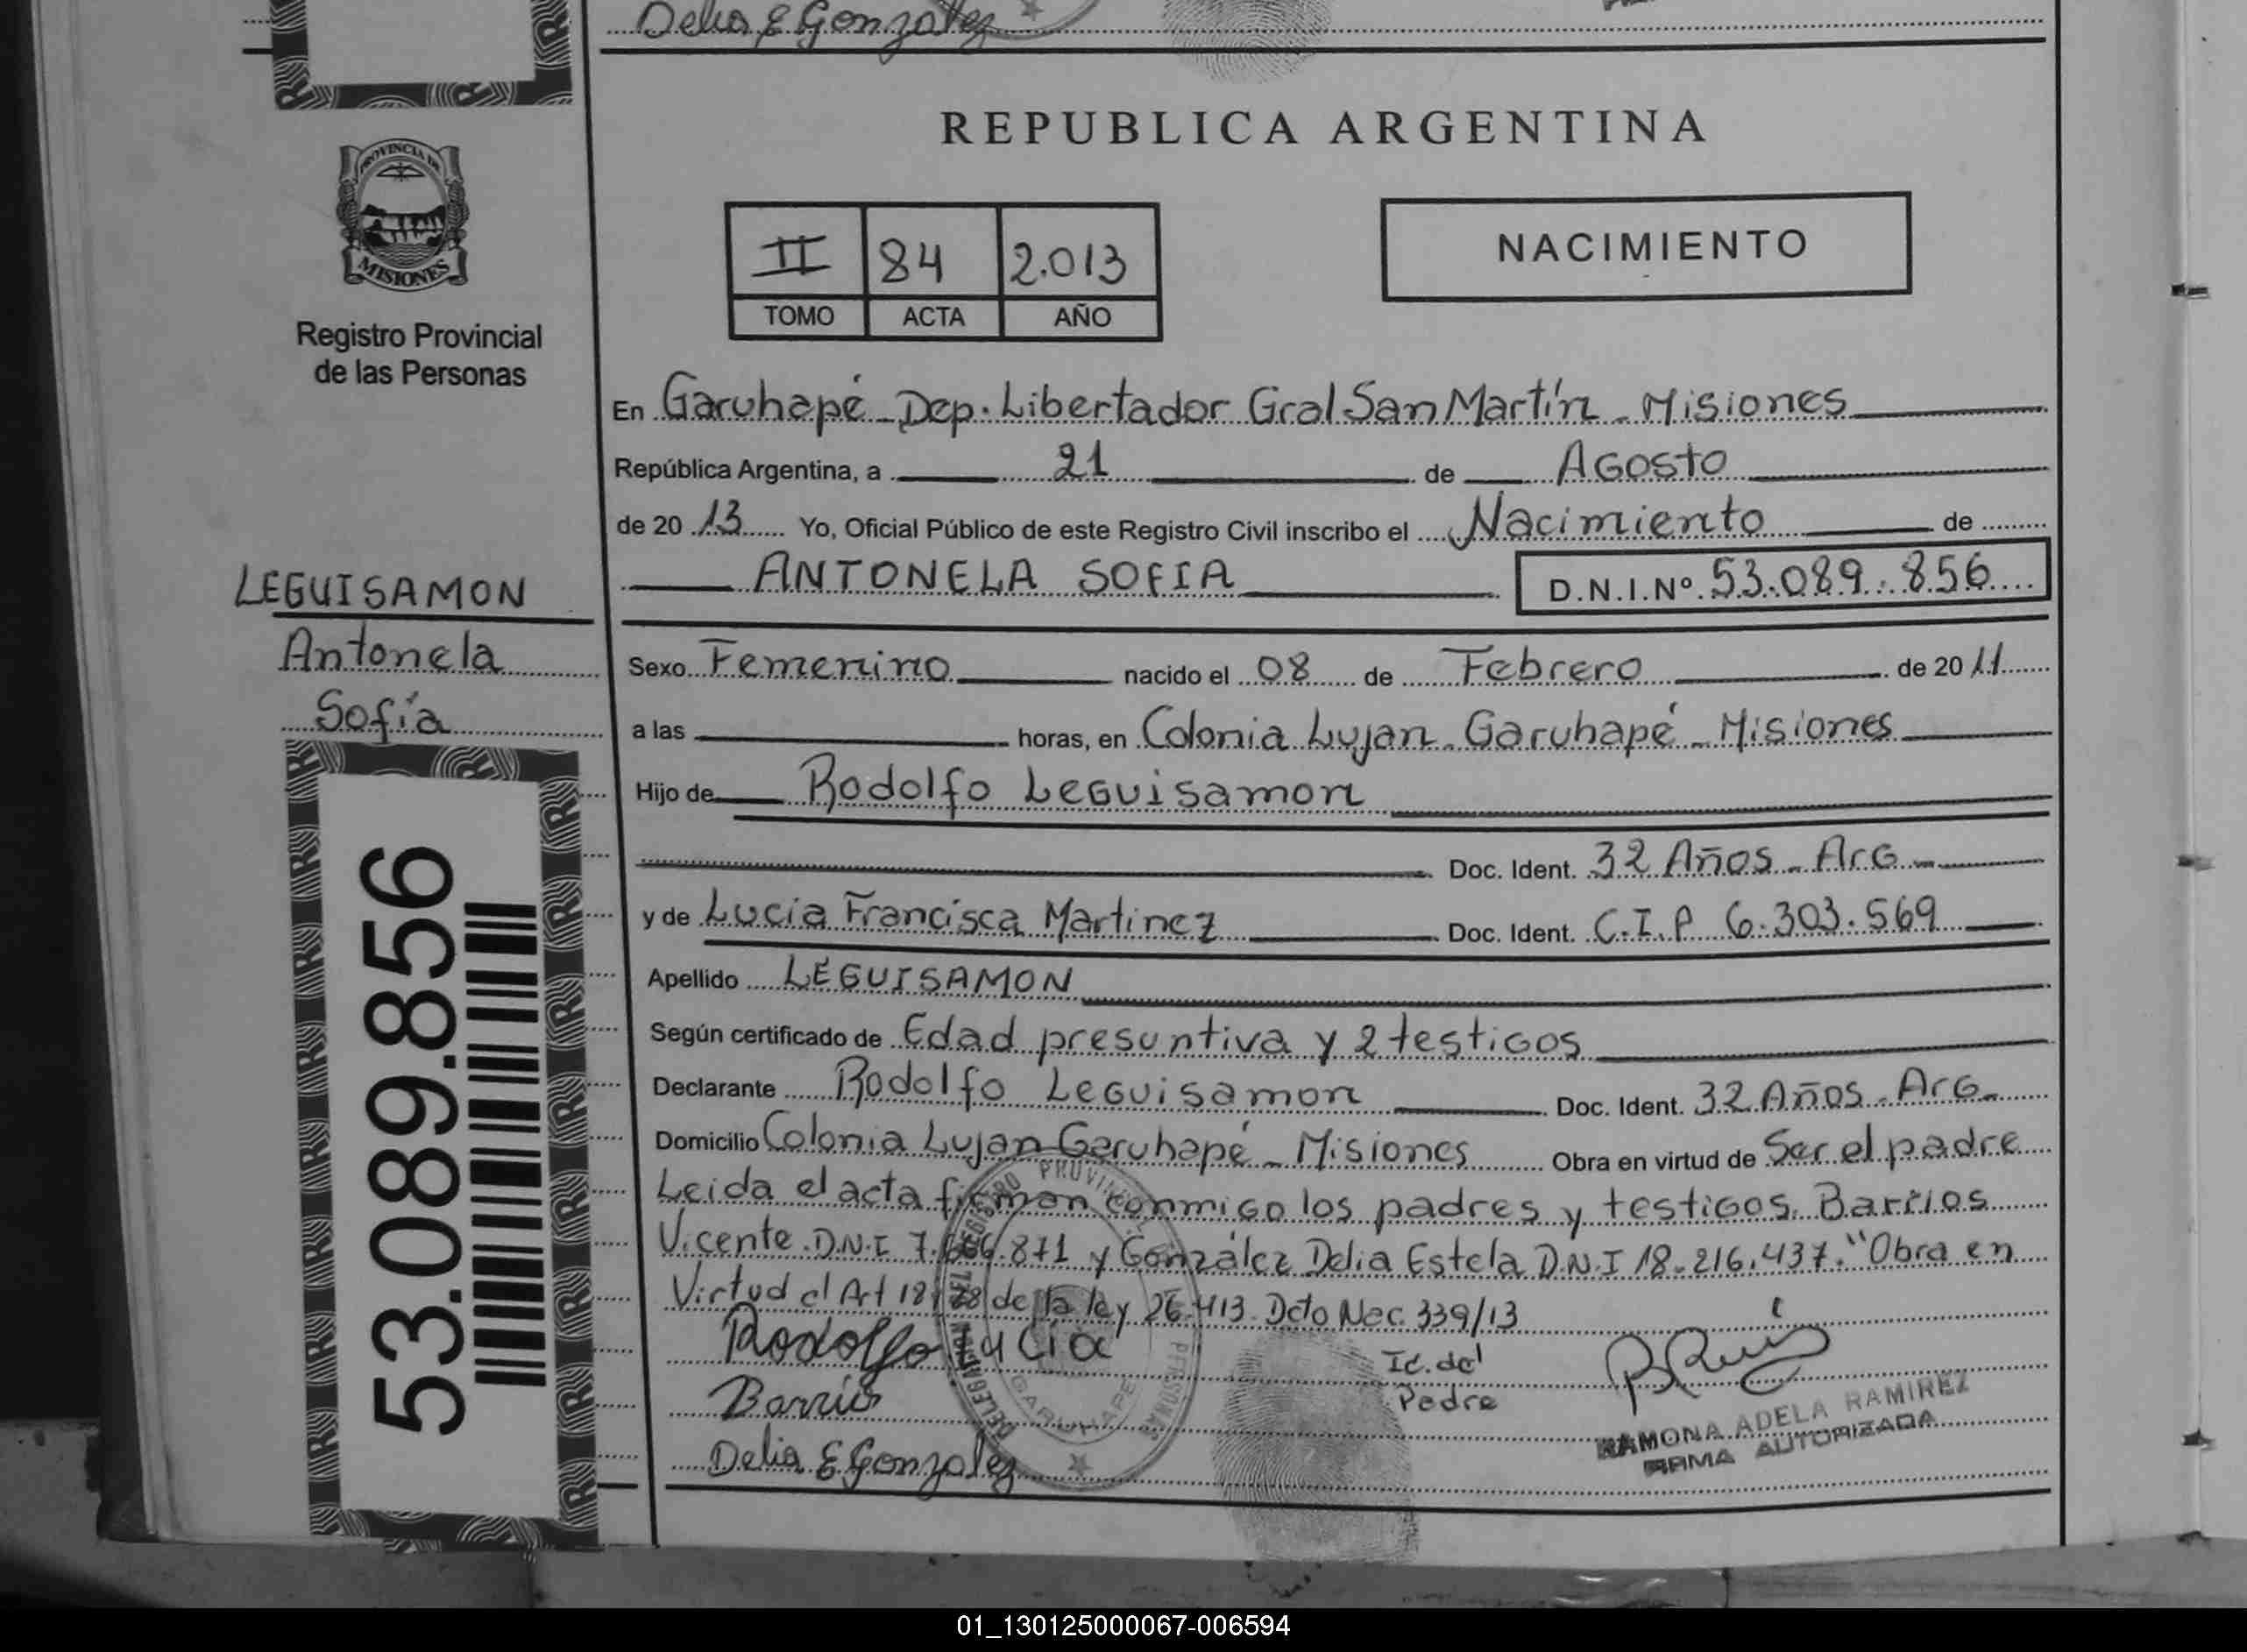 Delia E Gonzalez
REPUBLICA ARGENTINA
PROVINCIA DE
MISIONES
Registro Provincial
de las Personas
II 84 2.013
TOMO ACTA AÑO
NACIMIENTO
En Garuhapé - Dep. Libertador Gral San Martín - Misiones
República Argentina, a 21 de Agosto
de 20 13 Yo, Oficial Público de este Registro Civil inscribo el Nacimiento de
ANTONELA SOFIA D.N.I.Nº 53.089.856
LEGUISAMON
Antonela
Sofía
Sexo Femenino nacido el 08 de Febrero de 20 11
a las horas, en Colonia Lujan - Garuhapé - Misiones
Hijo de Rodolfo Leguisamon
Doc. Ident. 32 Años - Arg -
y de Lucía Francisca Martinez Doc. Ident. C.I.P 6.303.569
Apellido LEGUISAMON
Según certificado de Edad presuntiva y 2 testigos
Declarante Rodolfo Leguisamon Doc. Ident. 32 Años - Arg -
Domicilio Colonia Lujan Garuhapé - Misiones Obra en virtud de Ser el padre
Leida el acta firman conmigo los padres y testigos. Barrios
Vicente D.N.I 7.666.871 y González Delia Estela D.N.I 18.216.437. "Obra en
Virtud el Art 18 y 28 de la ley 26.413 Dcto Nac. 339/13
Rodolfo Lucia
Id. del
Padre
Barrios
Delia E Gonzalez
RAMONA ADELA RAMIREZ
FIRMA AUTORIZADA
GARUHAPE
53.089.856
01_130125000067-006594